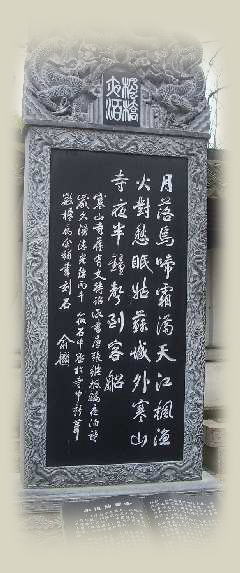 楓橋
夜泊
月落烏啼霜滿天江楓漁
火對愁眠姑蘇城外寒山
寺夜半鐘聲到客船
寒山寺舊有文待詔所書唐張繼楓橋夜泊詩
歲久漶漫光緒丙午筱石中丞於寺中新葺
數楹屬余補書刻石
俞樾